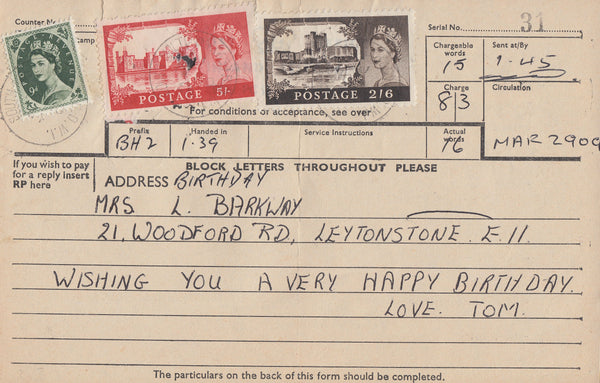 Counter
Serial No. 31
stamp
9D
POSTAGE 5/-
POSTAGE 2/6
Chargeable words
15
Sent at/By
1.45
For conditions of acceptance, see over
Charge
8/3
Circulation
Prefix
BH2
Handed in
1.39
Service Instructions
Actual words
16
MAR 2909
If you wish to pay for a reply insert RP here
BLOCK LETTERS THROUGHOUT PLEASE
ADDRESS BIRTHDAY
MRS L. BARKWAY
21, WOODFORD RD, LEYTONSTONE. E.11.
WISHING YOU A VERY HAPPY BIRTHDAY.
LOVE. TOM.
The particulars on the back of this form should be completed.